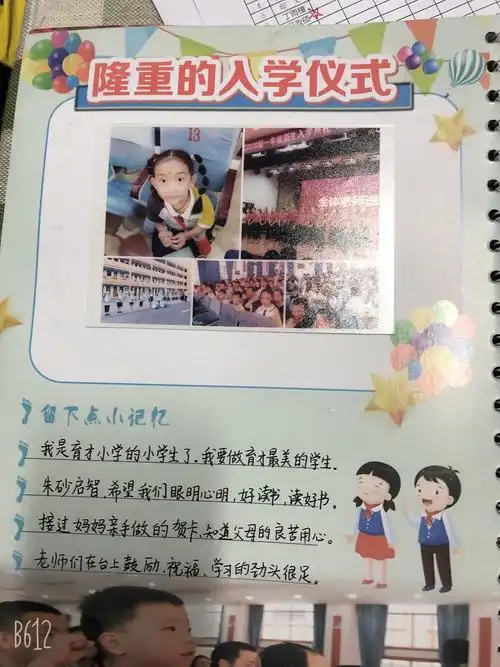 隆重的入学仪式
13
留下点小记忆
我是育才小学的小学生了。我要做育才最美的学生。
朱砂启智,希望我们眼明心明,好读书,读好书。
接过妈妈亲手做的贺卡,知道父母的良苦用心。
老师们在台上鼓励、祝福,学习的劲头很足。
B612